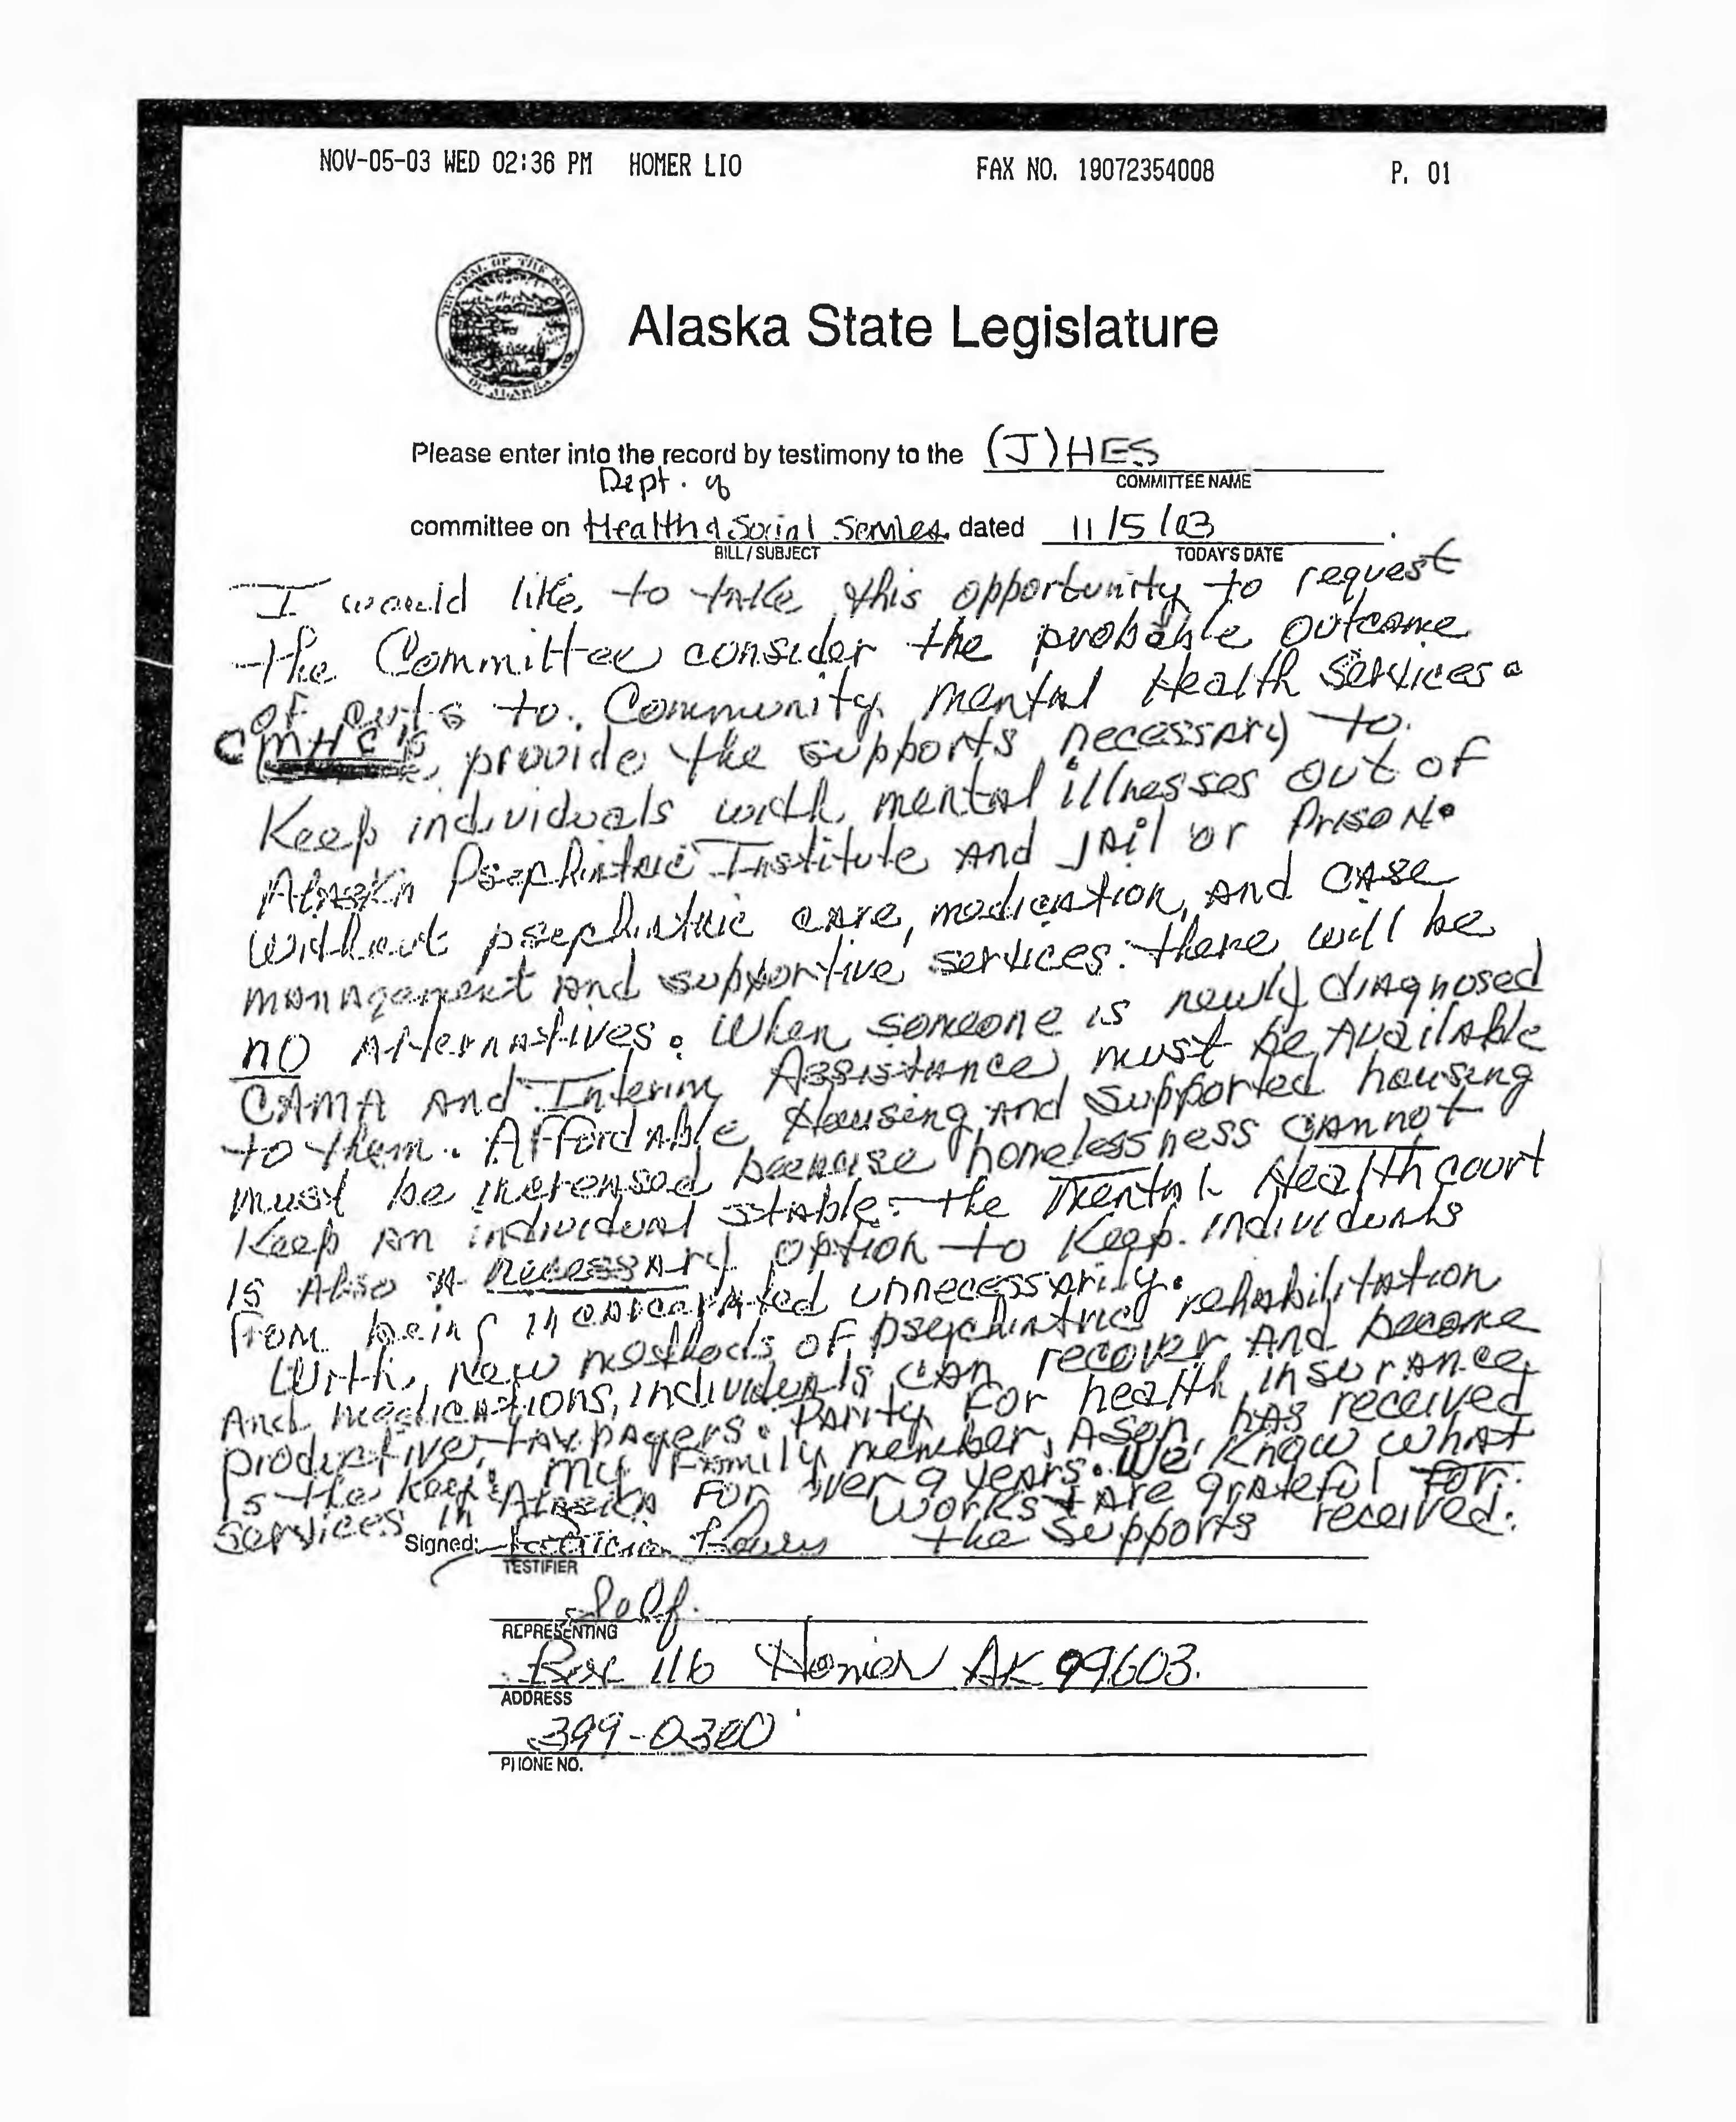 NOV-05-03 WED 02:36 PM HOMER LIO FAX NO. 19072354008 P. 01
THE SEAL OF THE STATE OF ALASKA
Alaska State Legislature
Please enter into the record by testimony to the (J) HES
COMMITTEE NAME
Dept. of
committee on Health & Social Services dated 11/5/03.
BILL / SUBJECT TODAY'S DATE
I would like to take this opportunity to request
the Committee consider the probable outcome
of cuts to Community mental Health Services.
CMHC's provide the supports necessary to
Keep individuals with mental illnesses out of
Alaska Psychiatric Institute and jail or prison.
Without psychiatric care, medication, and case
management and supportive services there will be
no alternatives. When someone is newly diagnosed
CAMA and Interim Assistance must be available
to them. Affordable Housing and supported housing
must be increased because homelessness cannot
Keep an individual stable. The Mental Health court
is also a necessary option to Keep individuals
from being incarcerated unnecessarily.
With new methods of psychiatric rehabilitation
And medications, individuals can recover and become
productive, taxpayers. Parity for health insurance
is the key! My family member, A son, has received
services in Alaska for over 9 years. We Know what
works & are grateful for
the supports received.
Signed:
TESTIFIER
Self
REPRESENTING
Box 116 Homer AK 99603
ADDRESS
399-0300
PHONE NO.